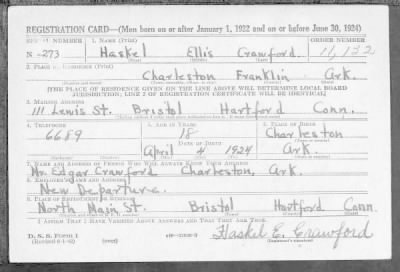 REGISTRATION CARD—(Men born on or after January 1, 1922 and on or before June 30, 1924)
SERIAL NUMBER 1. NAME (Print) ORDER NUMBER
N-273 Haskel Ellis Crawford 11,132
2. PLACE OF RESIDENCE (Print)
Charleston Franklin Ark.
[THE PLACE OF RESIDENCE GIVEN ON THE LINE ABOVE WILL DETERMINE LOCAL BOARD
JURISDICTION; LINE 2 OF REGISTRATION CERTIFICATE WILL BE IDENTICAL]
3. MAILING ADDRESS
111 Lewis St. Bristol Hartford Conn.
4. TELEPHONE 5. AGE IN YEARS 6. PLACE OF BIRTH
6689 18 Charleston
DATE OF BIRTH
April 4 1924 Ark.
7. NAME AND ADDRESS OF PERSON WHO WILL ALWAYS KNOW YOUR ADDRESS
Mr. Edgar Crawford Charleston, Ark.
8. EMPLOYER'S NAME AND ADDRESS
New Departure.
9. PLACE OF EMPLOYMENT OR BUSINESS
North Main St. Bristol Hartford Conn.
I AFFIRM THAT I HAVE VERIFIED ABOVE ANSWERS AND THAT THEY ARE TRUE.
D. S. S. Form 1
(Revised 6-1-42) (over) Haskel E. Crawford
(Registrant's signature)